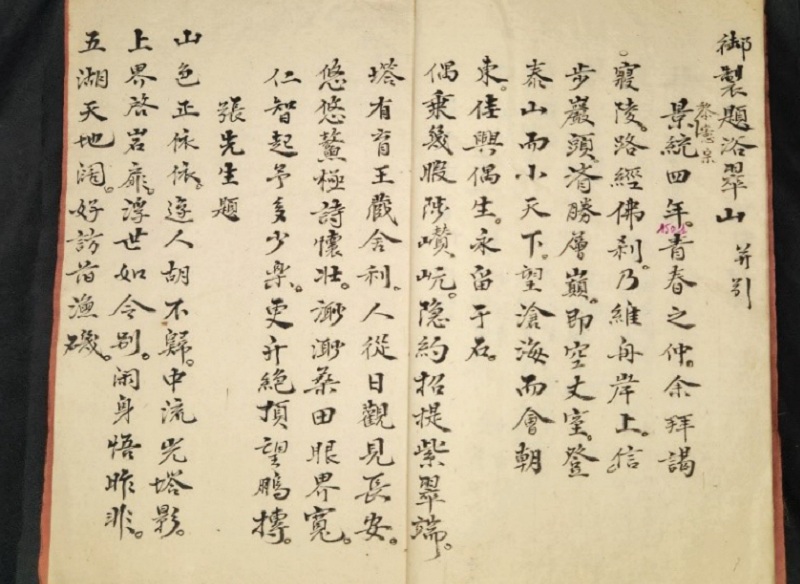 御製題浴翠山 并引
黎憲宗
景統四年。青春之仲。余拜謁
寢陵。路經佛刹。乃維舟岸上。信
步巖頭。済勝層巔。即空丈室。登
泰山而小天下。望滄海而會朝
東。佳興偶生。永留于石。
偶乘幾暇陟巑岏。隐約招提紫翠端。
塔有育王藏舍利。人從日觀見長安。
悠悠鰲極詩懷壯。渺渺桑田眼界寬。
仁智起予多少樂。更升絶頂望鵬摶。
張先生題
山色正依依。逰人胡不歸。中流光塔影。
上界啓岩扉。浮世如今别。闲身悟昨非。
五湖天地闊。好訪旧漁磯。